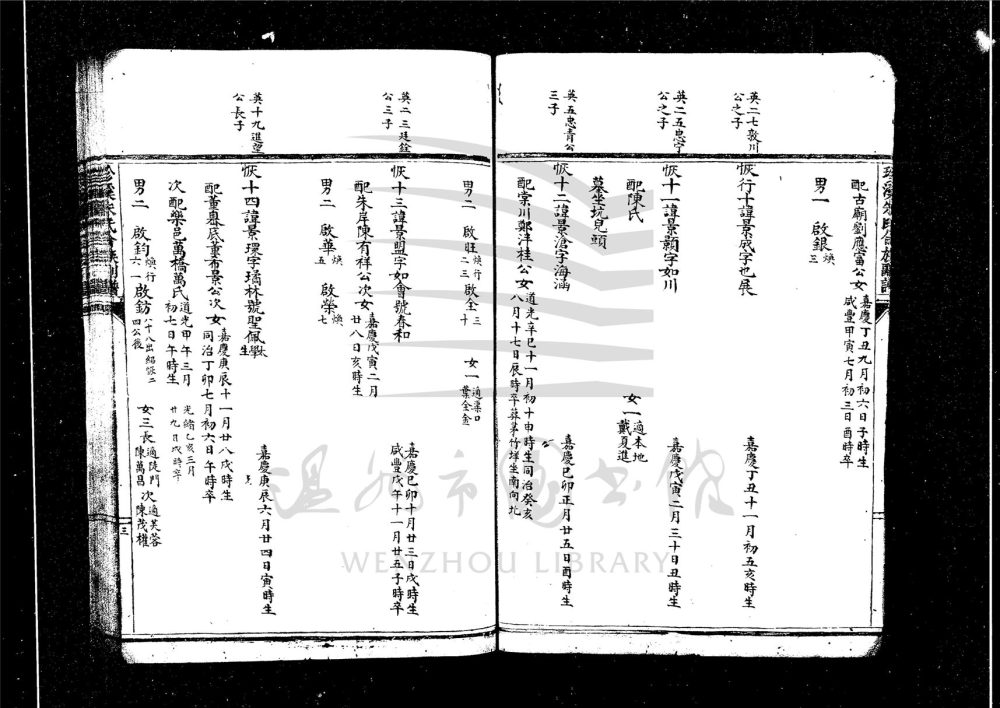 配古廟劉應富公女嘉慶丁丑九月初六日子時生
咸豐甲寅七月初三日酉時卒
男一 啟銀煥三
英二七敦川
公之子
恢行十諱景成字也展 嘉慶丁丑十一月初五亥時生
英二五忠宇
公之子
恢十一諱景顏字如川 嘉慶戊寅二月三十日丑時生
配陳氏 女一適本地
戴夏進
墓坐坑兒頭
英五忠青公
三子
恢十二諱景滄字海涵 嘉慶己卯正月廿五日酉時生
配棠川鄭沣桂公女道光辛巳十一月初十申時生同治癸亥
八月十七日辰時卒葬茅竹垟坐南向北
男二 啟旺煥行二三 啟全三十 女一適渠口
葉全金
英二三廷銓
公三子
恢十三諱景盟字如會號春和 嘉慶己卯十月廿三日戌時生
咸豐戊午十一月廿五子時卒
配朱岸陳有祥公次女嘉慶戊寅二月
廿八日亥時生
男二 啟華煥五 啟榮煥七
英十九進望
公長子
恢十四諱景環字璚林號聖佩太學生 嘉慶庚辰六月廿四日寅時生
配董嶴底董布景公次女嘉慶庚辰十一月廿八戌時生
同治丁卯七月初六日午時卒
次配樂邑萬橋萬氏道光甲午三月
初七日午時生 光緒乙亥三月
廿九日戌時卒
男二 啟鈞煥行六一 啟鈁八十八出紹恢二
四公後 女三長適陡門
陳萬昌 次適芙蓉
陳茂權
三
温州市图书馆
WENZHOU LIBRARY